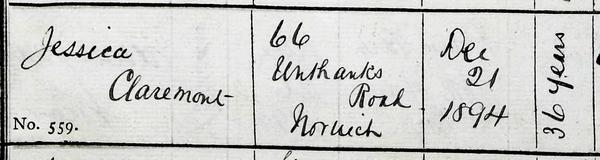 Jessica
Claremont
No. 559.
66
Unthanks
Road
Norwich
Dec
21
1894
36 years